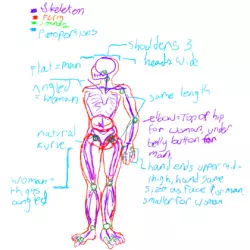 Skeleton
Form
Joints
Proportions
shoulders 3
heads wide
flat = man
Angled
= woman
same length
elbow = top of hip
for woman, under
belly button for
man
natural
curve
hand ends upper mid-
thigh, hand same
size as face for man,
smaller for woman
woman =
thighs
angled